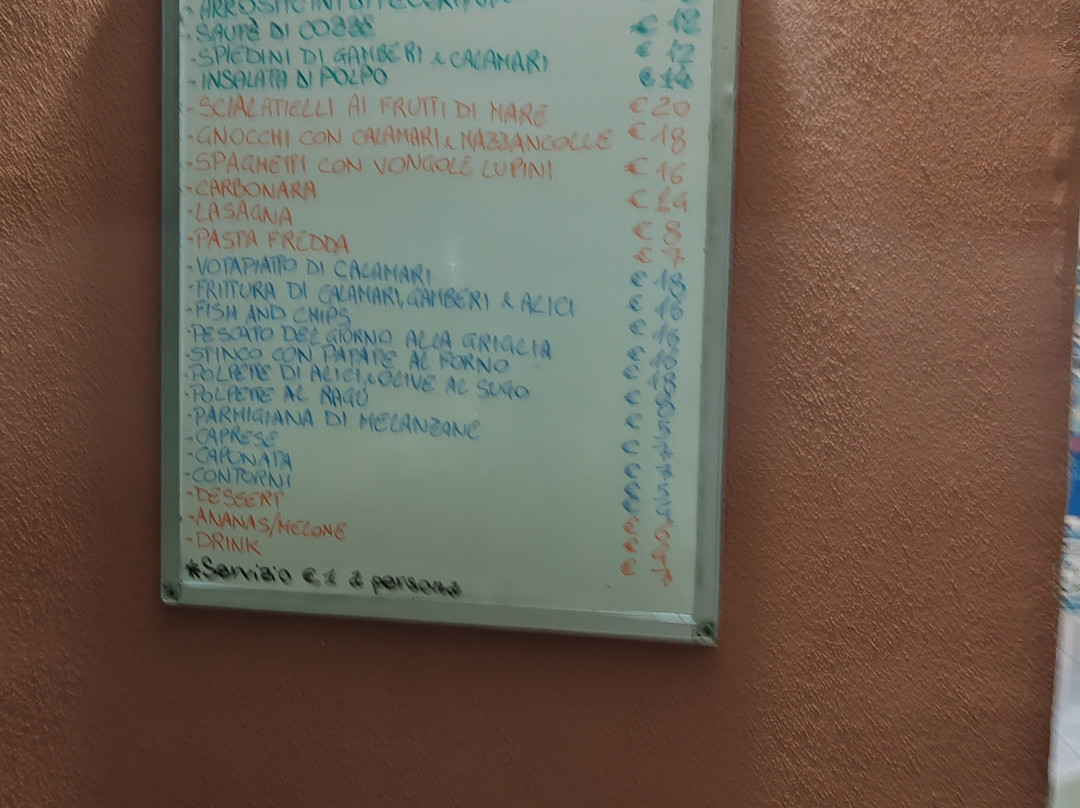 - ARROSTICINI DI PECORINA
- SAUTÈ DI COZZE € 12
- SPIEDINI DI GAMBERI & CALAMARI € 12
- INSALATA DI POLPO € 14
- SCIALATIELLI AI FRUTTI DI MARE € 20
- GNOCCHI CON CALAMARI & MAZZANCOLLE € 18
- SPAGHETTI CON VONGOLE LUPINI € 16
- CARBONARA €
- LASAGNA € 8
- PASTA FREDDA € 7
- VOTAPIATTO DI CALAMARI € 18
- FRITTURA DI CALAMARI, GAMBERI & ALICI € 16
- FISH AND CHIPS € 16
- PESCATO DEL GIORNO ALLA GRIGLIA € 16
- STINCO CON PATATE AL FORNO €
- POLPETTE DI ALICI & OLIVE AL SUGO €
- POLPETTE AL RAGÙ €
- PARMIGIANA DI MELANZANE €
- CAPRESE €
- CAPONATA €
- CONTORNI €
- DESSERT €
- ANANAS/MELONE €
- DRINK €
*Servizio € 1 a persona